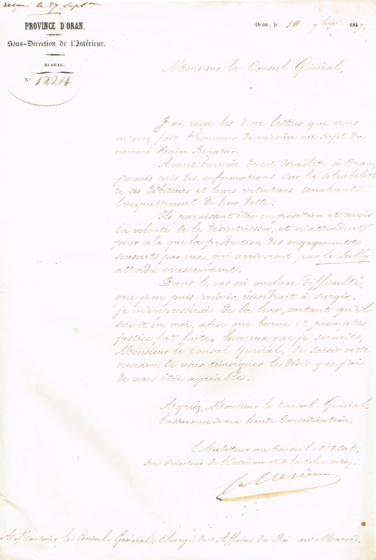 reçue le 27 septbre
PROVINCE D'ORAN.
Sous-Direction de l'Intérieur.
BUREAU.
N° 1224
Oran, le 18 7bre 1847.
Monsieur le Consul Général,
J'ai reçu les deux lettres que vous
m'avez fait l'honneur de m'écrire au sujet du
nommé
Avant l'arrivée de cet Israélite à Oran,
j'avais pris des informations sur la solvabilité
de ses débiteurs et leurs intentions touchant
l'acquittement de leur dette.
Ils paraissent être en position et avoir
la volonté de le désintéresser, et n'attendent
pour cela que la production des engagements
souscrits par eux, qui arriveront par le
attendu incessamment.
Dans le cas où quelque difficulté,
que je ne puis prévoir, viendrait à surgir,
je m'empresserais de la lever, autant qu'il
serait en moi, afin que bonne et prompte
justice fût faite, heureux que je serais,
Monsieur le Consul Général, de saisir cette
occasion de vous témoigner le désir que j'ai
de vous être agréable.
Agréez, Monsieur le Consul Général,
l'assurance de ma haute considération.
L'Auditeur au Conseil d'Etat,
Sous Directeur de l'Intérieur et de la Colonisation,
A Monsieur le Consul Général, chargé des Affaires du Roi au Maroc.